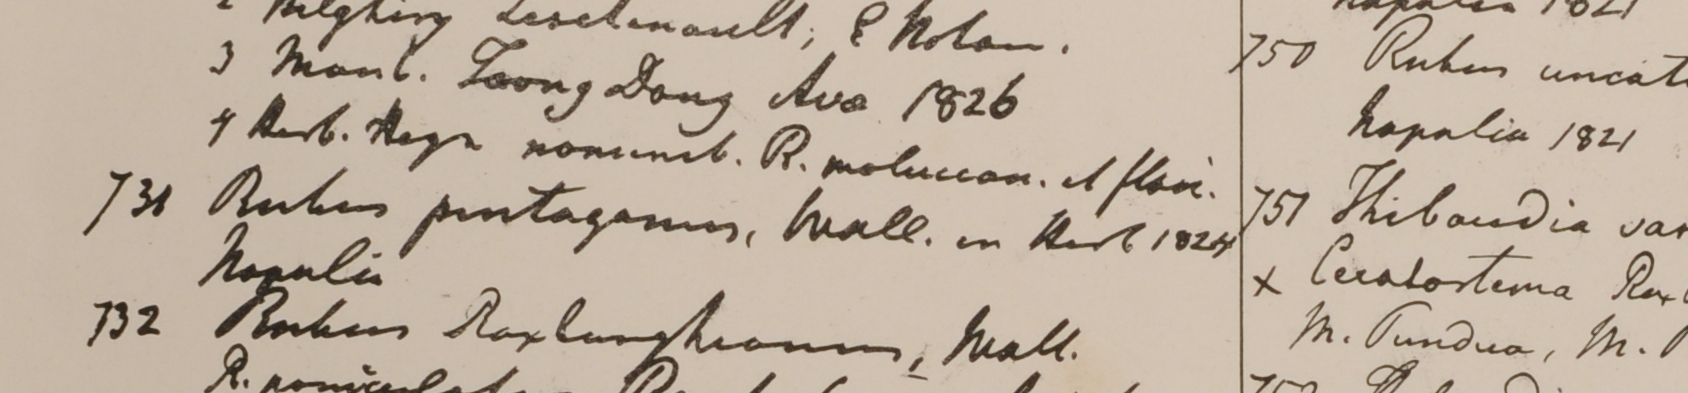 2 Nilghiry Leschenault; E Notan.
3 Mont. Toong Dong Ava 1826
4 Herb. Heyn noment. R. moluccan. et flavi.
731 Rubus pentagonus, Wall. in Herb 1824
Napalia
732 Rubus Roxburghianus, Wall.
R. paniculat
Napalia 1821
750 Rubus uncat
Napalia 1821
751 Thibaudia var
x Ceratostema Rox
M. Pundua, M.